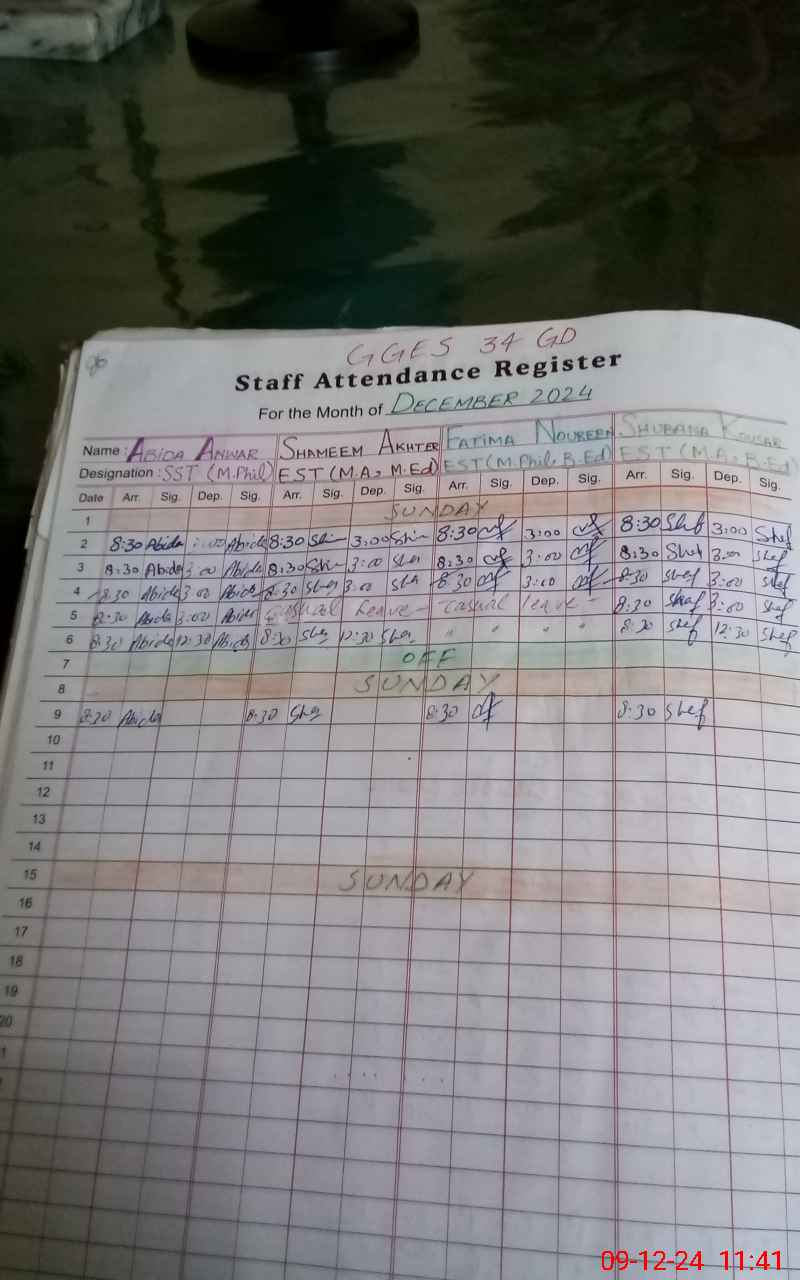 96
GGES 34 GD
Staff Attendance Register
For the Month of DECEMBER 2024
Name : ABIDA ANWAR SHAMEEM AKHTER FATIMA NOUREEN SHUBANA KOUSAR
Designation : SST (M.Phil) EST (M.A, M.Ed) EST (M.Phil, B.Ed) EST (M.A, B.Ed)
Date Arr. Sig. Dep. Sig. Arr. Sig. Dep. Sig. Arr. Sig. Dep. Sig. Arr. Sig. Dep. Sig.
1 SUNDAY
2 8:30 Abida :00 Abida 8:30 3:00 8:30 3:00 8:30 Shef 3:00 Shef
3 8:30 Abida 3:00 Abida 8:30 3:00 8:30 3:00 8:30 Shef 3:00 Shef
4 8:30 Abida 3:00 Abida 8:30 3:00 8:30 3:00 8:30 Shef 3:00 Shef
5 8:30 Abida 3:00 Abida Casual Leave - Casual leave - 8:30 Shef 3:00 Shef
6 8:30 Abida 12:30 Abida 8:30 12:30 " " " " 8:30 Shef 12:30 Shef
7 OFF
8 SUNDAY
9 8:30 Abida 8:30 8:30 8:30 Shef
10
11
12
13
14
15 SUNDAY
16
17
18
19
20
09-12-24 11:41